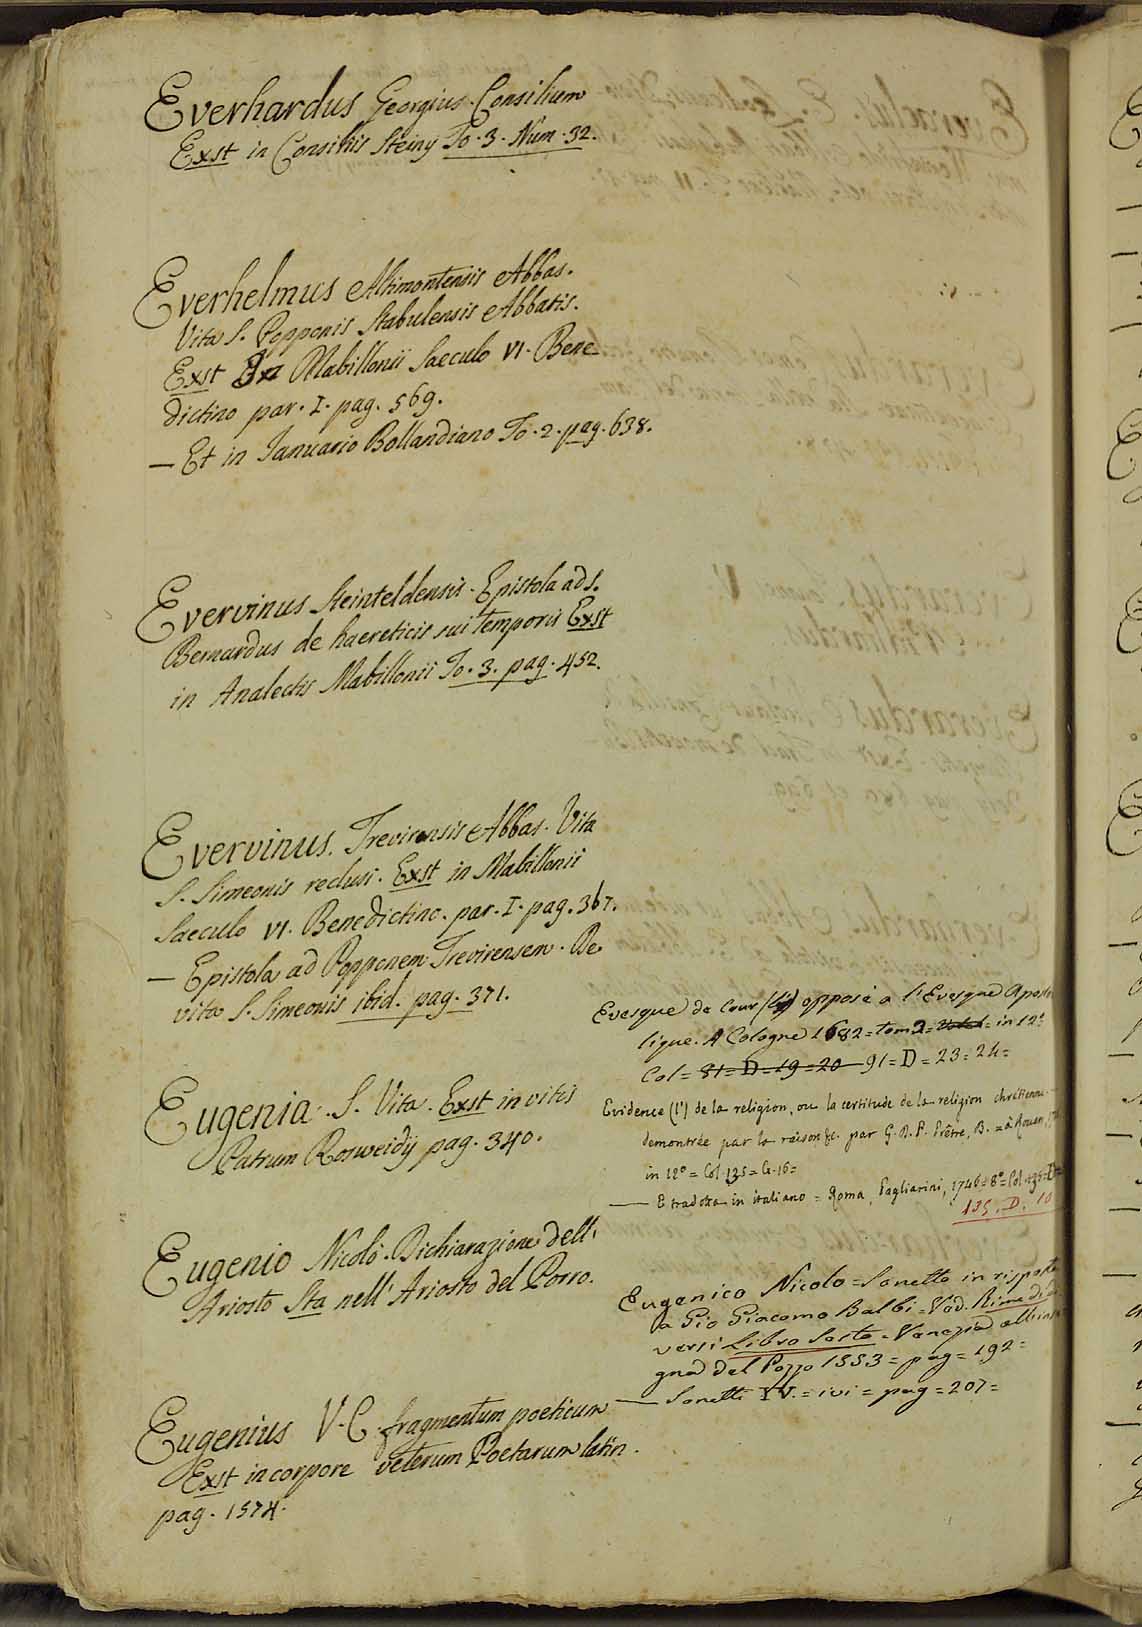 Everhardus Georgius. Consilium
Exst in Consiliis Steiny To. 3. Num. 32.
Everhelmus Altimontensis Abbas.
Vita S. Popponis Stabulensis Abbatis.
Exst In Mabillonii Saeculo VI. Bene
dictino par. I. pag. 569.
— Et in Januario Bollandiano To. 2. pag. 638.
Evervinus Steinteldensis. Epistola ad S.
Bernardus de haereticis sui temporis Exst
in Analectis Mabillonii To. 3. pag. 452.
Evervinus. Trevirensis Abbas. Vita
S. Simeonis reclusi. Exst in Mabillonii
Saeculo VI. Benedictino. par. I. pag. 367.
— Epistola ad Popponem Trevirensem. De
vita S. Simeonis ibid. pag. 371.
Eugenia. S. Vita. Exst in vitis
Patrum Rosweidÿ pag. 340.
Eugenio Nicolò. Dichiarazione dell'
Ariosto Sta nell' Ariosto del Porro.
Eugenius V. C. fragmentum poeticum
Exst in corpore veterum Poetarum latin.
pag. 1574.
Evesque de Cour (l') opposé a l'Evesque Aposto
lique. A Cologne 1682 = tom 2 = in 12.°
Col = 81 = D = 19 = 20 91 = D = 23 = 24 =
Evidence (l') de la religion, ou la certitude de la religion chrétienne
demontrée par la raison &c. par G. D. P. Prêtre, B. = à Rouen,
in 12° = Col. 135 = C. 16 =
— E tradotta in italiano = Roma, Pagliarini, 1746 = 8° = Col.
135. D. 10
Eugenico Nicolo = Sonetto in risposta
a Gio Giacomo Balbi = Ved. Rime di di
versi Libro Sesto = Venezia all'inse
gna del Pozzo 1553 = pag = 192 =
— Sonetti IV. = ivi = pag = 207 =